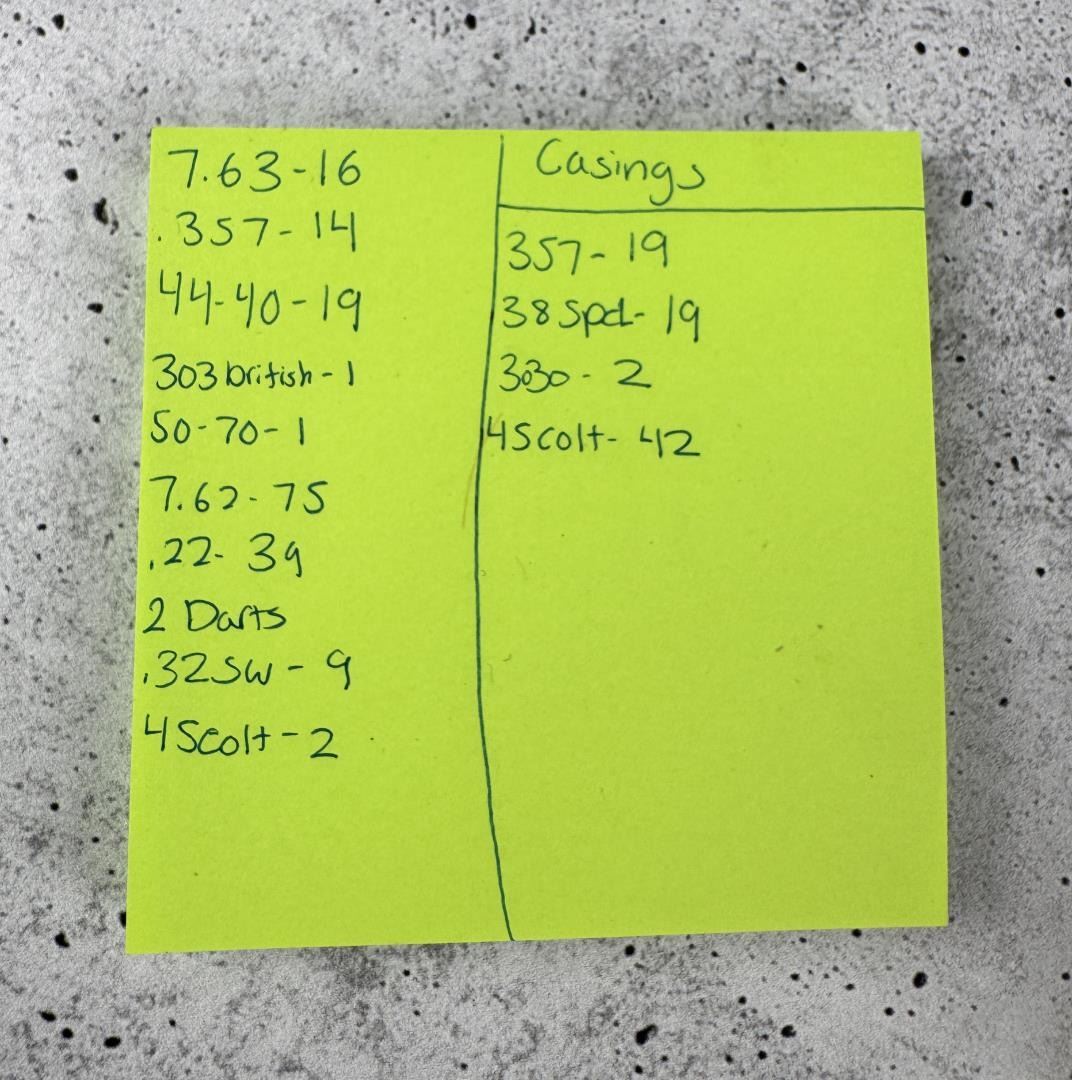 7.63-16
.357-14
44-40-19
303 british-1
50-70-1
7.62-75
.22-39
2 Darts
.32SW-9
45colt-2
Casings
357-19
38 Spcl-19
3030-2
45colt-42